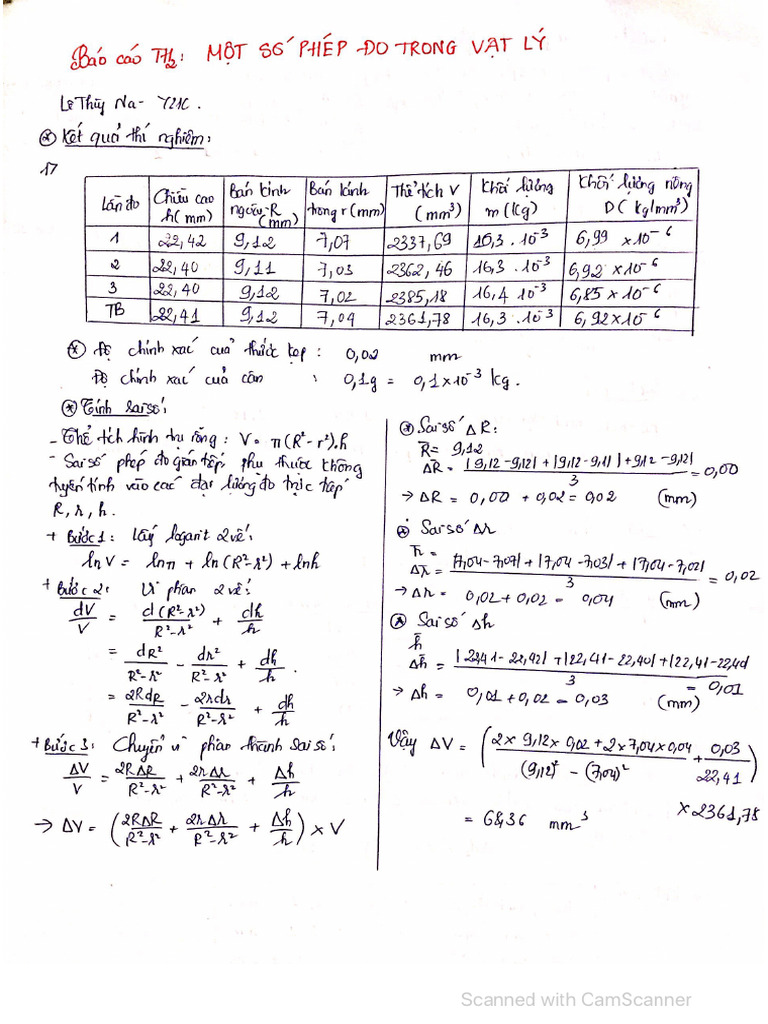 Báo cáo TH2: MỘT SỐ PHÉP ĐO TRONG VẬT LÝ
Lê Thùy Na - Y21C.
* Kết quả thí nghiệm:
1/
Lần đo | Chiều cao h (mm) | Bán kính ngoài R (mm) | Bán kính trong r (mm) | Thể tích V (mm³) | Khối lượng m (kg) | Khối lượng riêng D (kg/mm³)
1 | 22,42 | 9,12 | 7,07 | 2337,69 | 16,3 . 10⁻³ | 6,99 × 10⁻⁶
2 | 22,40 | 9,11 | 7,03 | 2362,46 | 16,3 . 10⁻³ | 6,92 × 10⁻⁶
3 | 22,40 | 9,12 | 7,02 | 2385,18 | 16,4 10⁻³ | 6,85 × 10⁻⁶
TB | 22,41 | 9,12 | 7,04 | 2361,78 | 16,3 . 10⁻³ | 6,92 × 10⁻⁶
* Độ chính xác của thước kẹp : 0,02 mm
Độ chính xác của cân : 0,1g = 0,1 × 10⁻³ kg.
* Tính sai số:
- Thể tích hình trụ rỗng : V = π(R² - r²).h
- Sai số phép đo gián tiếp phụ thuộc không
tuyến tính vào các đại lượng đo trực tiếp
R, r, h.
+ Bước 1: Lấy logarit 2 vế:
lnV = lnπ + ln(R²-r²) + lnh
+ Bước 2: Vi phân 2 vế:
dV/V = d(R²-r²)/(R²-r²) + dh/h
= dR²/(R²-r²) - dr²/(R²-r²) + dh/h .
= 2RdR/(R²-r²) - 2rdr/(R²-r²) + dh/h
+ Bước 3: Chuyển vi phân thành sai số:
ΔV/V = 2RΔR/(R²-r²) + 2rΔr/(R²-r²) + Δh/h
→ ΔV = (2RΔR/(R²-r²) + 2rΔr/(R²-r²) + Δh/h) × V
* Sai số ΔR:
R̄ = 9,12
ΔR̄ = (|9,12-9,12| + |9,12-9,11| + |9,12-9,12|)/3 = 0,00
→ ΔR = 0,00 + 0,02 = 0,02 (mm)
* Sai số Δr
r̄ =
Δr̄ = (|7,04-7,07| + |7,04-7,03| + |7,04-7,02|)/3 = 0,02
→ Δr = 0,02 + 0,02 = 0,04 (mm)
* Sai số Δh
h̄
Δh̄ = (|22,41-22,42| + |22,41-22,40| + |22,41-22,40|)/3 = 0,01
→ Δh = 0,01 + 0,02 = 0,03 (mm)
Vậy ΔV = ((2 × 9,12 × 0,02 + 2 × 7,04 × 0,04)/((9,12)² - (7,04)²) + 0,03/22,41) × 2361,78
= 68,36 mm³
Scanned with CamScanner